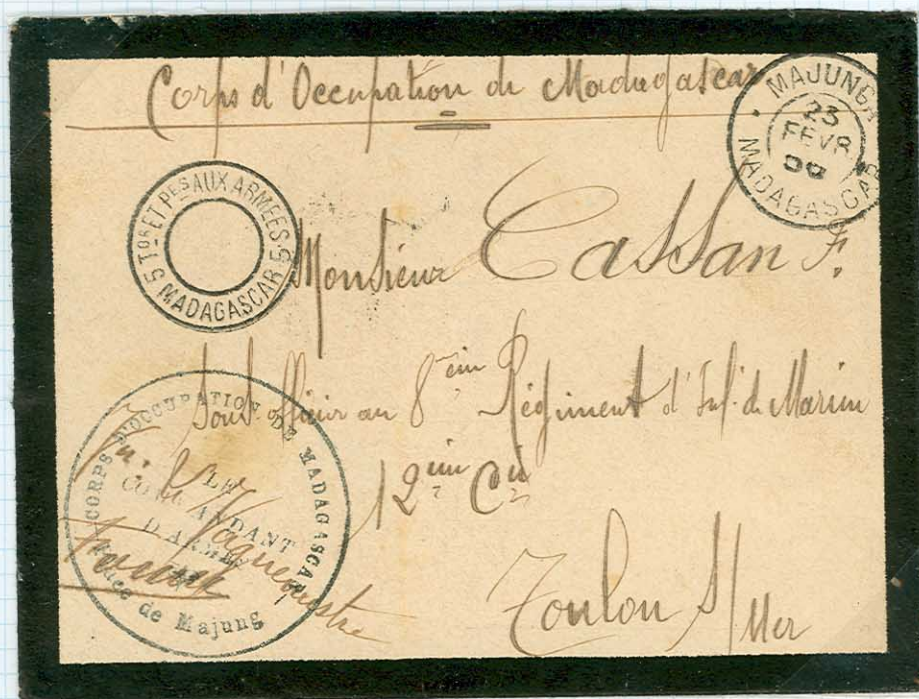 Corps d'Occupation de Madagascar
MAJUNGA
23
FEVR.
MADAGASCAR
5 Tor ET Pes AUX ARMÉES 5
MADAGASCAR
Monsieur Cassan F.
Sous officier au 8ème Régiment d'Inf. de Marine
12eme Cie
Toulon s/Mer
CORPS D'OCCUPATION DE MADAGASCAR
LE
COMMANDANT
D'ARMES
Place de Majunga
Vu: Le Vaguemestre